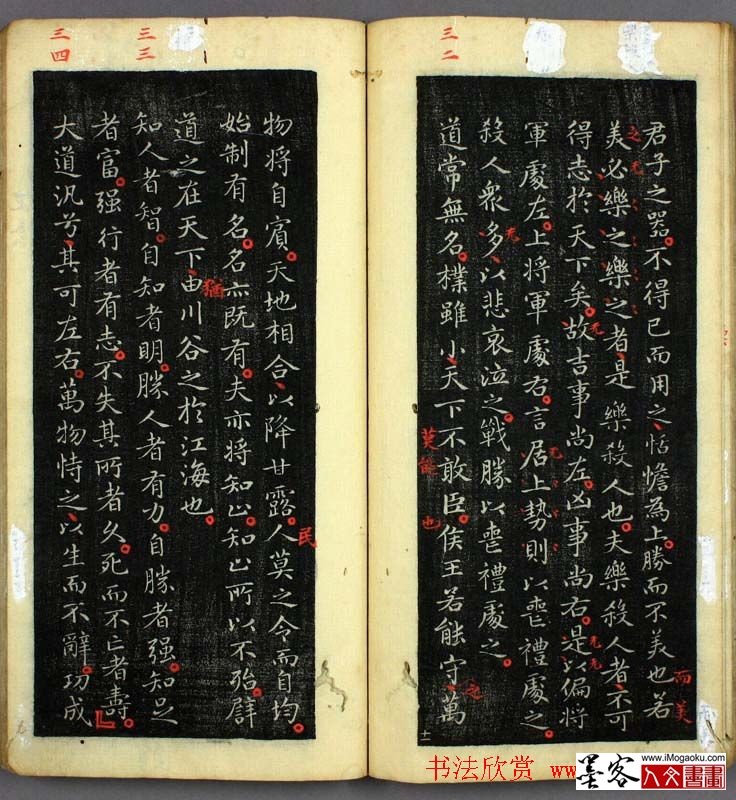 三二
君子之器不得已而用之恬憺為上勝而不美也若
美必樂之樂之者是樂殺人也夫樂殺人者不可
得志於天下矣故吉事尚左凶事尚右是以偏將
軍處左上將軍處右言居上勢則以喪禮處之
殺人衆多以悲哀泣之戰勝以喪禮處之
道常無名樸雖小天下不敢臣侯王若能守萬
之无
无
无
无
无无
而美
莫能也
之
十一
三三
三四
物將自賓天地相合以降甘露人莫之令而自均
始制有名名亦既有夫亦將知止知止所以不殆譬
道之在天下由川谷之於江海也
知人者智自知者明勝人者有力自勝者强知足
者富强行者有志不失其所者久死而不亡者壽
大道汎兮其可左右萬物恃之以生而不辭功成
民
猶
书法欣赏 www
墨客
人文書畫
www.iMogaoku.com